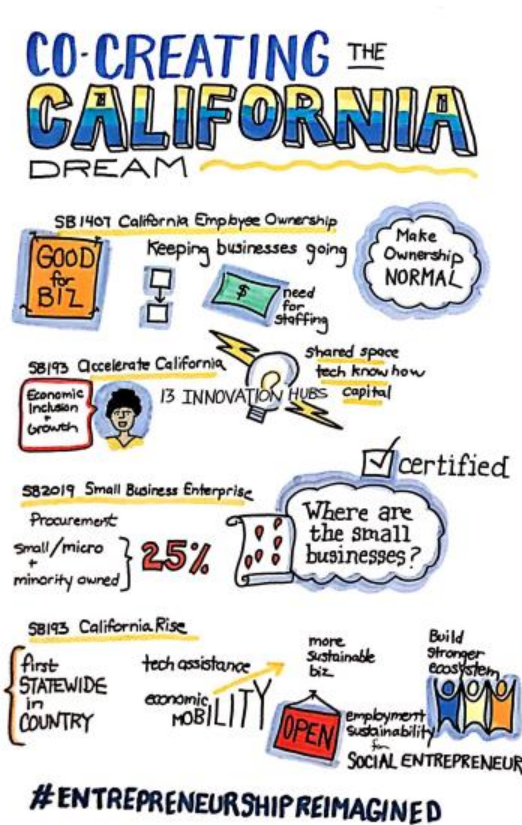 CO-CREATING THE
CALIFORNIA
DREAM
SB 1407 California Employee Ownership
GOOD
for
BIZ
Keeping businesses going
$
need
for
staffing
Make
Ownership
NORMAL
SB193 Accelerate California
Economic
Inclusion
+
Growth
13 INNOVATION HUBS
shared space
tech know how
capital
certified
SB2019 Small Business Enterprise
Procurement
small/micro
+
minority owned
25%
Where are
the small
businesses?
SB193 California Rise
first
STATEWIDE
in
COUNTRY
tech assistance
economic
MOBILITY
more
sustainable
biz
OPEN
Build
stronger
ecosystem
employment
sustainability
for
SOCIAL ENTREPRENEUR
#ENTREPRENEURSHIPREIMAGINED